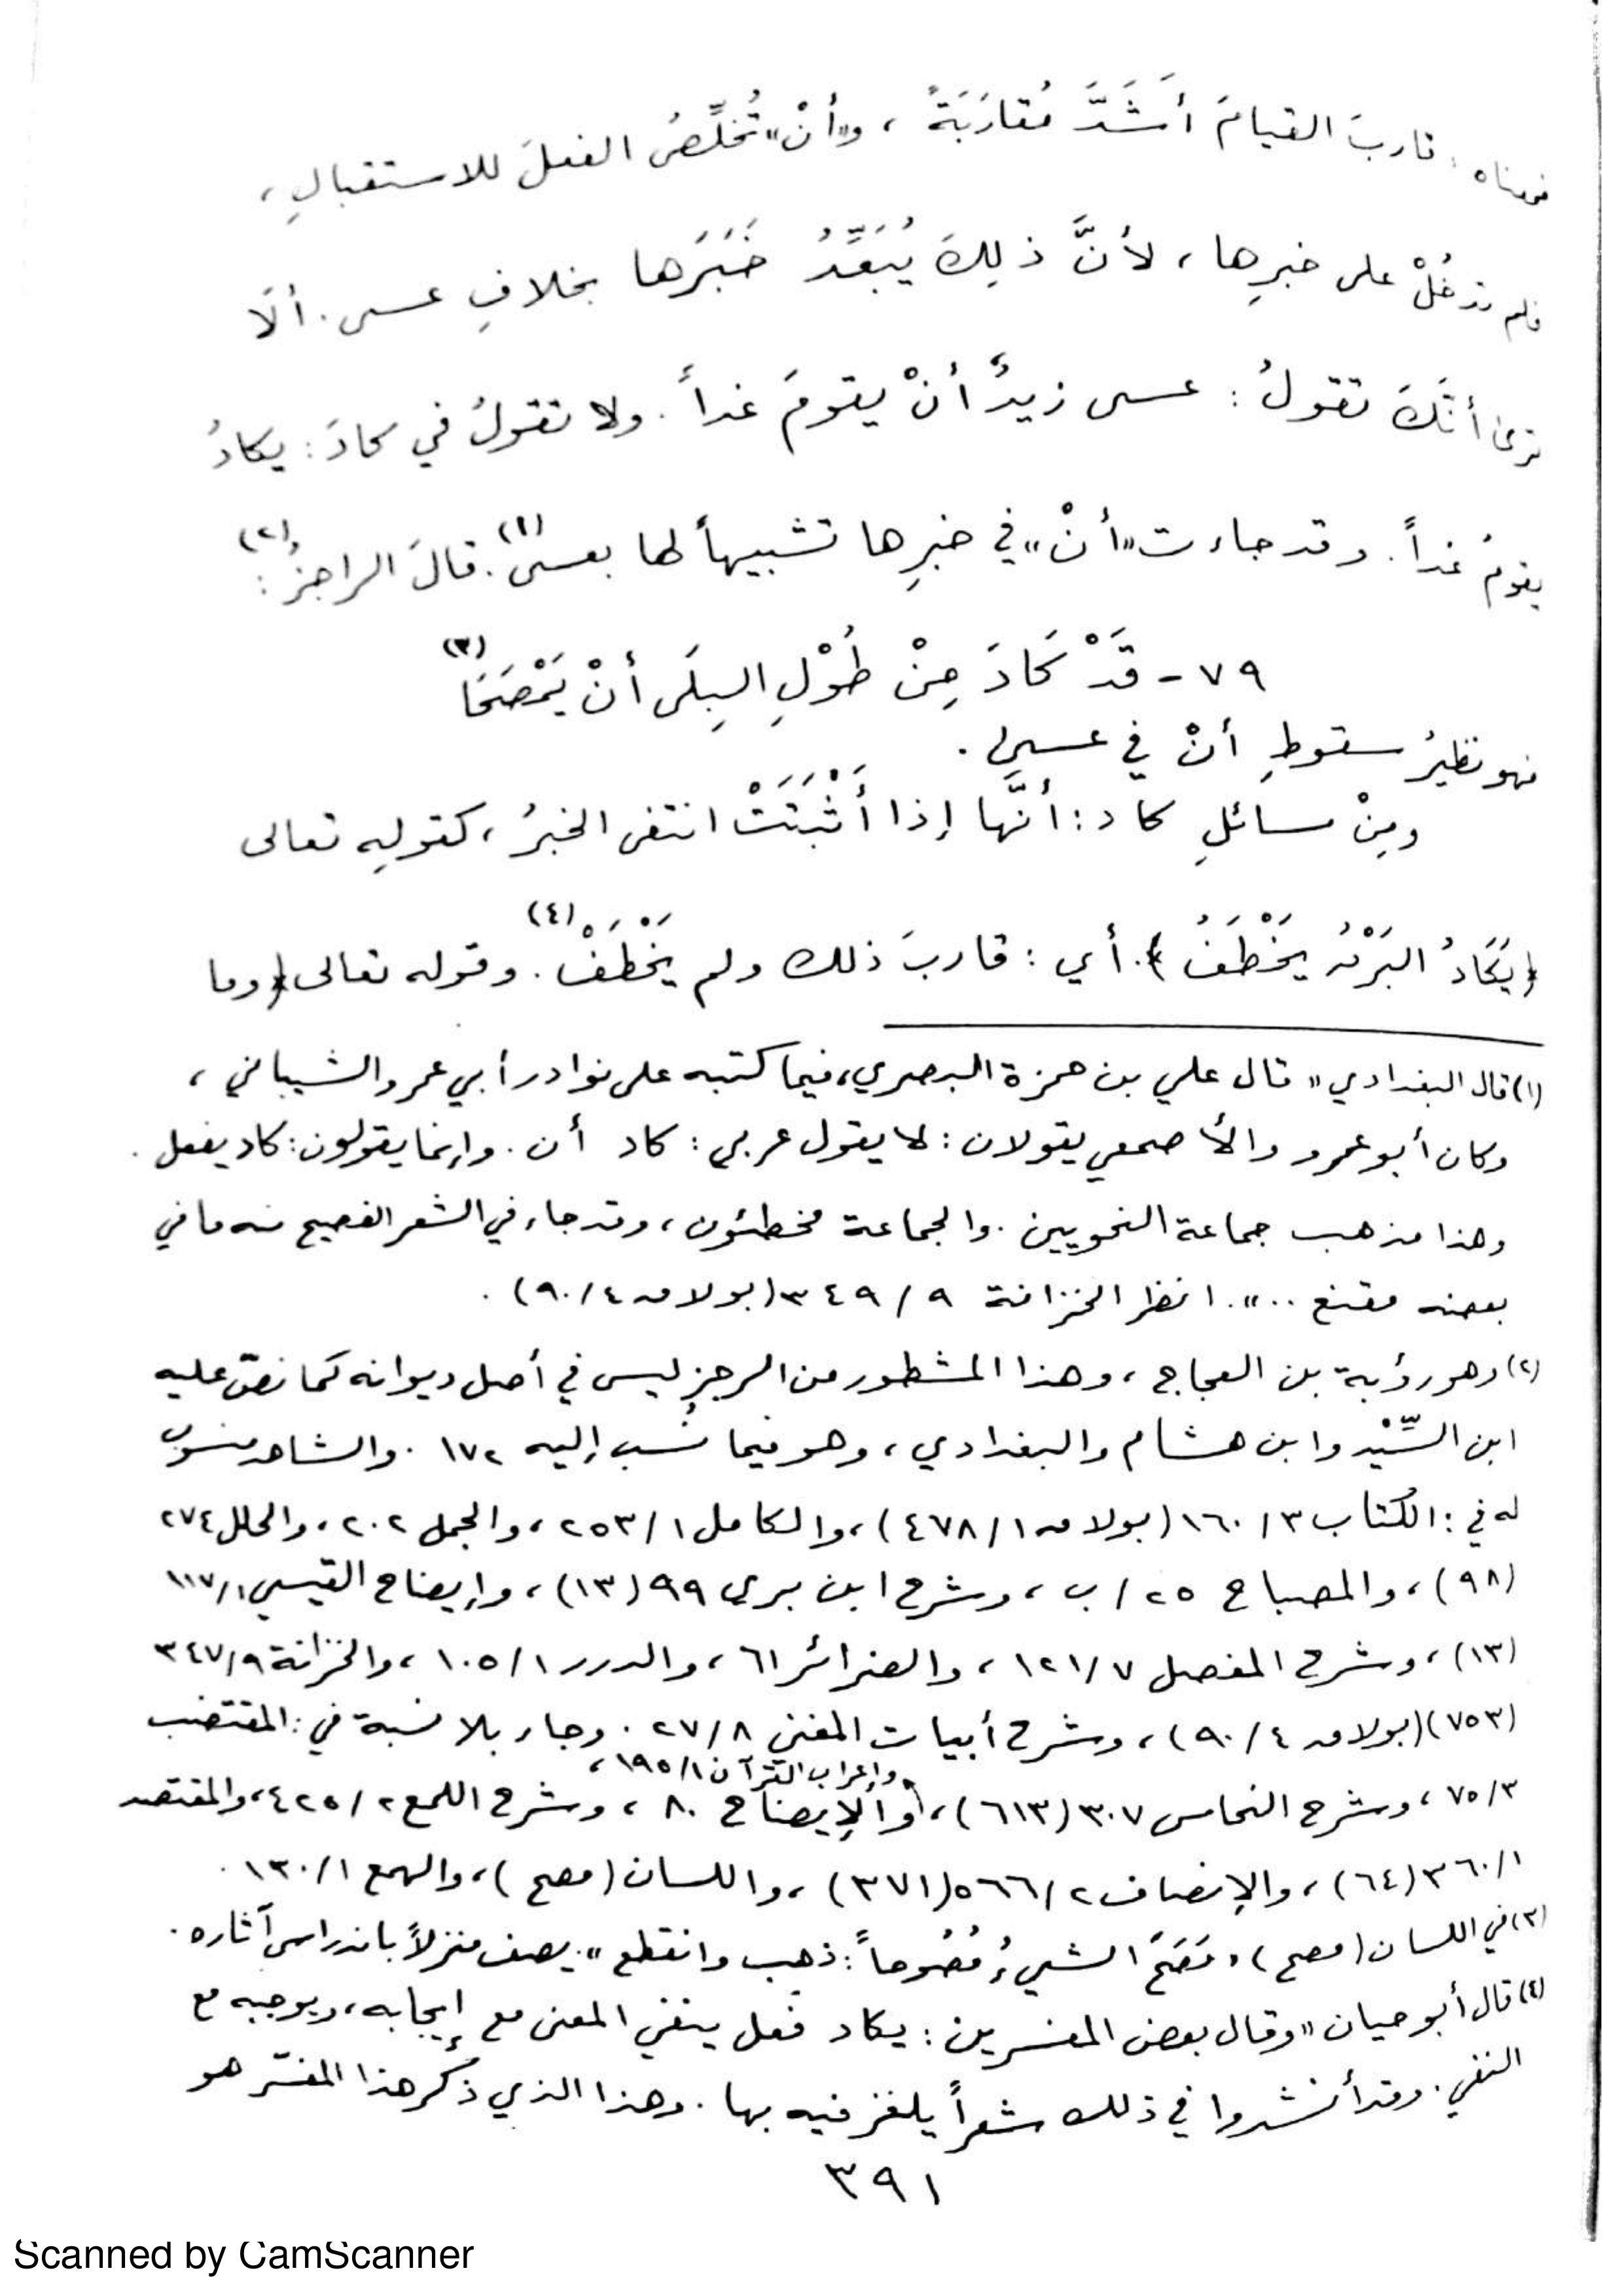 فمعناه: قاربَ القيامَ أَشَدَّ مُقارَبَةً ، و«أنْ» تُخَلِّصُ الفعلَ للاستقبالِ ،
فلم تدخُلْ على خبرِها ، لأنَّ ذلِكَ يُبَعِّدُ خَبَرَها بخلافِ عسى . ألَا
ترىٰ أنَّكَ تقولُ : عسى زيدٌ أنْ يقومَ غداً . ولا تقولُ في كادَ : يكادُ
يقومُ غداً . وقد جاءت «أنْ» في خبرِها تشبيهاً لها بعسى(١) . قالَ الراجزُ(٢) :
٧٩ - قَدْ كَادَ مِنْ طُوْلِ البِلَى أنْ يَمْصَحَا(٣)
فهو نظيرُ سقوطِ أنْ في عسى .
ومِنْ مسائلِ كاد : أنَّها إذا أَثْبَتَتْ انتفى الخبرُ ، كقولِه تعالى
﴿يَكَادُ البَرْقُ يَخْطَفُ ﴾ . أي : قاربَ ذلك ولم يَخْطَفْ(٤) . وقوله تعالى ﴿وما
(١) قال البغدادي « قال علي بن حمزة البصري، فيما كتبه على نوادر أبي عمرو الشيباني ،
وكان أبو عمرو والأصمعي يقولان : لا يقول عربي : كاد أن . وإنما يقولون : كاد يفعل .
وهذا مذهب جماعة النحويين . والجماعة مخطئون ، وقد جاء في الشعر الفصيح منه ما في
بعضه مقنع .. ». انظر الخزانة ٩ / ٣٤٩ (بولاق ٤ / ٩٠) .
(٢) وهو رؤبة بن العجاج ، وهذا المشطور من الرجز ليس في أصل ديوانه كما نصّ عليه
ابن السِّيْد وابن هشام والبغدادي ، وهو فيما نُسب إليه ١٧٢ . والشاهد منسوب
له في : الكتاب ٣ / ١٦٠ (بولاق ١ / ٤٧٨) ، والكامل ١ / ٢٥٣ ، والجمل ٢٠٢ ، والحلل ٢٧٤
(٩٨) ، والمصباح ٢٥ / ب ، وشرح ابن بري ٩٩ (١٣) ، وإيضاح القيسي ١ / ١١٧
(١٣) ، وشرح المفصل ٧ / ١٢١ ، والضرائر ٦١ ، والدرر ١ / ١٠٥ ، والخزانة ٩ / ٣٤٧
(٧٥٣) (بولاق ٤ / ٩٠) ، وشرح أبيات المغني ٨ / ٢٧ . وجاء بلا نسبة في : المقتضب
وإعراب القرآن ١ / ١٩٥ ،
٣ / ٧٥ ، وشرح النحاس ٣٠٧ (٦١٣) ، والإيضاح ٨٠ ، وشرح اللمع ٢ / ٤٢٥ ، والمقتصد
١ / ٣٦٠ (٦٤) ، والإنصاف ٢ / ٥٦٦ (٣٧١) ، واللسان (مصح ) ، والهمع ١ / ١٣٠ .
(٣) في اللسان (مصح ) « مَصَحَ الشيءُ مُصُوحاً : ذهب وانقطع » . يصف منزلاً باندراس آثاره .
(٤) قال أبو حيان « وقال بعض المفسرين : يكاد فعل ينفي المعنى مع إيجابه ، ويوجبه مع
النفي . وقد أنشدوا في ذلك شعراً يلغز فيه بها . وهذا الذي ذكر هذا المفسّر هو
٣٩١
Scanned by CamScanner